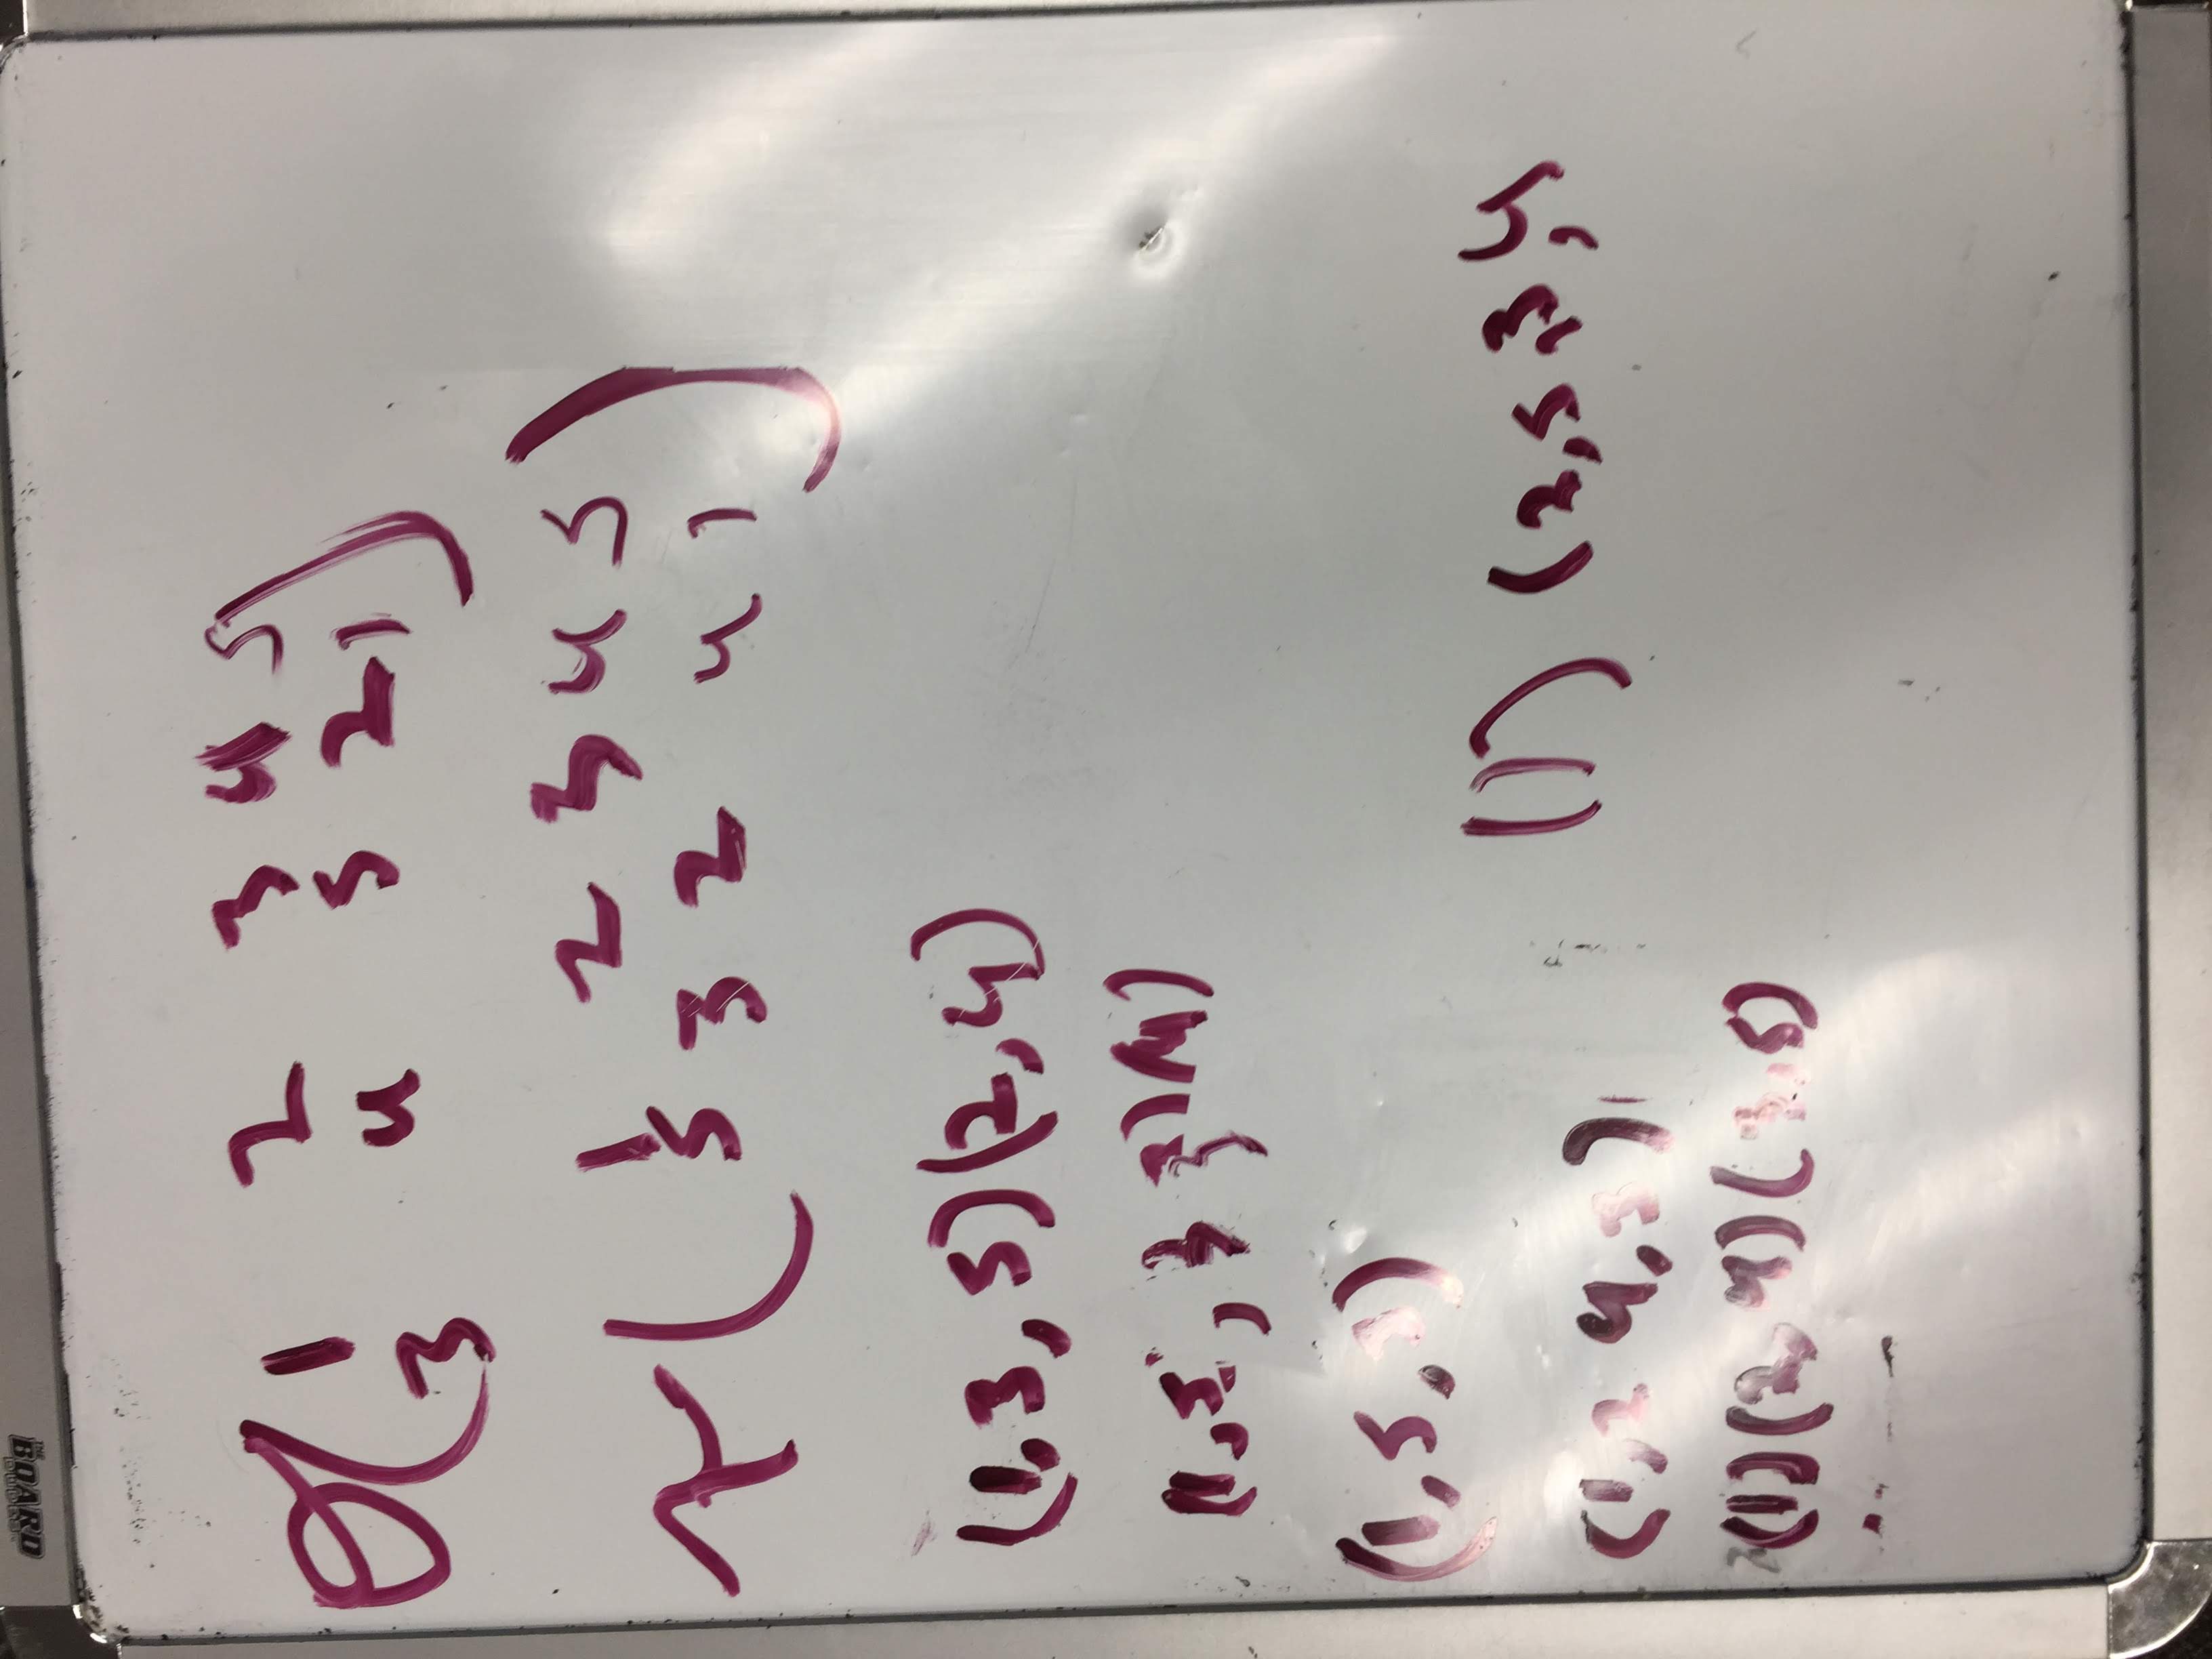 THE BOARD DUDES
σ( 1 2 3 4 5 )
3 4 5 2 1
τ( 1 2 3 4 5 )
5 3 2 4 1
(1,3,5)(2,4)
(1,5, (4)
(1,5,3)
(1) (2,5,3,4
(1,2 4,3)
(1)(2,4)(3,5)